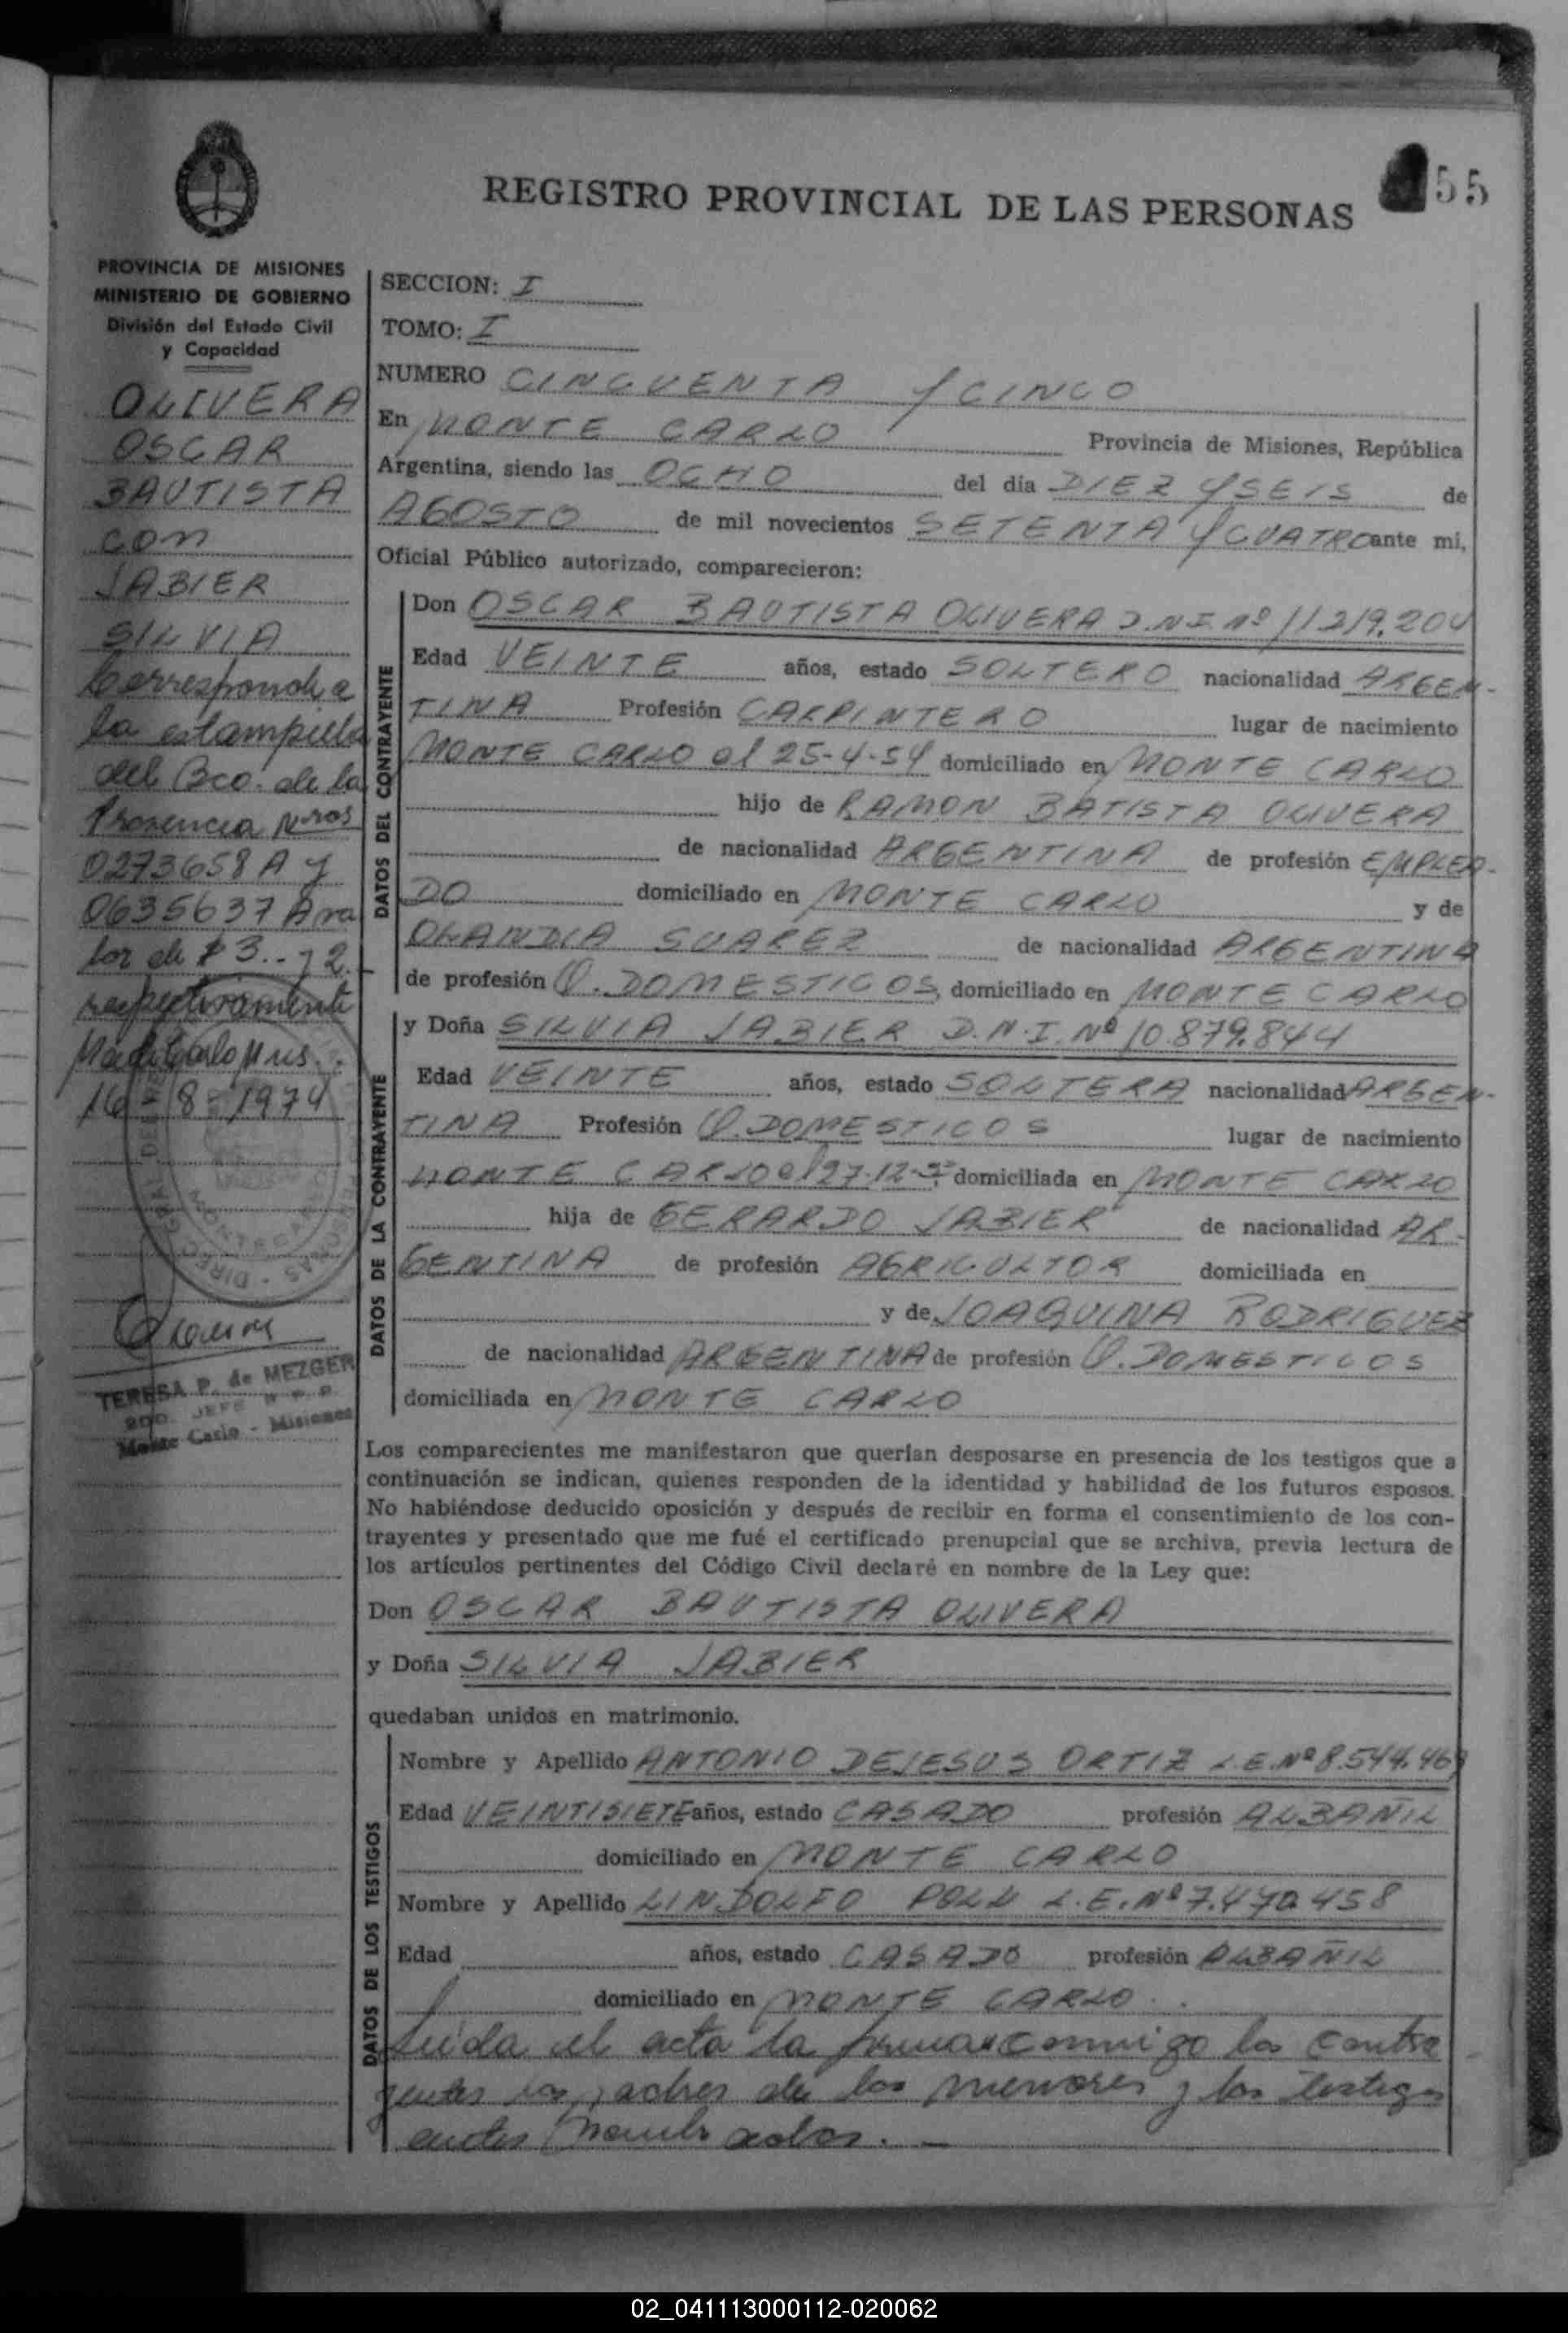 55
REGISTRO PROVINCIAL DE LAS PERSONAS
PROVINCIA DE MISIONES
MINISTERIO DE GOBIERNO
División del Estado Civil
y Capacidad
OLIVERA
OSCAR
BAUTISTA
con
JABIER
SILVIA
Corresponde a
la estampilla
del Bco. de la
Provincia Nros
0273658 A y
0635637 A va
lor de $ 3.- y 2.-
respectivamente
Monte Carlo Mnes.
16 - 8 - 1974
TERESA P. de MEZGER
JEFE R P P
Monte Carlo - Misiones
SECCION: I
TOMO: I
NUMERO CINCUENTA Y CINCO
En MONTE CARLO Provincia de Misiones, República
Argentina, siendo las OCHO del día DIEZ Y SEIS de
AGOSTO de mil novecientos SETENTA Y CUATRO ante mi,
Oficial Público autorizado, comparecieron:
DATOS DEL CONTRAYENTE
Don OSCAR BAUTISTA OLIVERA D.N.I. Nº 11.219.204
Edad VEINTE años, estado SOLTERO nacionalidad ARGEN-
TINA Profesión CARPINTERO lugar de nacimiento
MONTE CARLO el 25-4-54 domiciliado en MONTE CARLO
hijo de RAMON BATISTA OLIVERA
de nacionalidad ARGENTINA de profesión EMPLEA-
DO domiciliado en MONTE CARLO y de
OLANDIA SUAREZ de nacionalidad ARGENTINA
de profesión Q. DOMESTICOS, domiciliado en MONTE CARLO
DATOS DE LA CONTRAYENTE
y Doña SILVIA JABIER D.N.I. Nº 10.879.844
Edad VEINTE años, estado SOLTERA nacionalidad ARGEN-
TINA Profesión Q. DOMESTICOS lugar de nacimiento
MONTE CARLO el 27-12- domiciliada en MONTE CARLO
hija de GERARDO JABIER de nacionalidad AR-
GENTINA de profesión AGRICULTOR domiciliada en
y de JOAQUINA RODRIGUEZ
de nacionalidad ARGENTINA de profesión Q. DOMESTICOS
domiciliada en MONTE CARLO
Los comparecientes me manifestaron que querían desposarse en presencia de los testigos que a
continuación se indican, quienes responden de la identidad y habilidad de los futuros esposos.
No habiéndose deducido oposición y después de recibir en forma el consentimiento de los con-
trayentes y presentado que me fué el certificado prenupcial que se archiva, previa lectura de
los artículos pertinentes del Código Civil declaré en nombre de la Ley que:
Don OSCAR BAUTISTA OLIVERA
y Doña SILVIA JABIER
quedaban unidos en matrimonio.
DATOS DE LOS TESTIGOS
Nombre y Apellido ANTONIO DEJESUS ORTIZ L.E. Nº 8.544.469
Edad VEINTISIETE años, estado CASADO profesión ALBAÑIL
domiciliado en MONTE CARLO
Nombre y Apellido LINDOLFO POLL L.E. Nº 7.470.458
Edad años, estado CASADO profesión ALBAÑIL
domiciliado en MONTE CARLO
Leida el acta la firman conmigo los contra
yentes los padres de los menores y los testigos
antes nombrados.
02_041113000112-020062